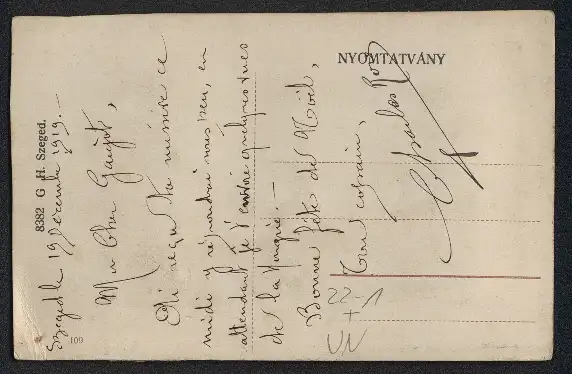 NYOMTATVÁNY
8382 G H. Szeged.
Szeged le 19 Décembre 1919.—
Mon Cher
Ai reçu ta missive ce
midi y répondrai sous peu, en
attendant je t'envoie quelques vues
de la Hongrie.—
Bonne fêtes de Noël,
Ton copain,
Charles
109
22-1
+
VN